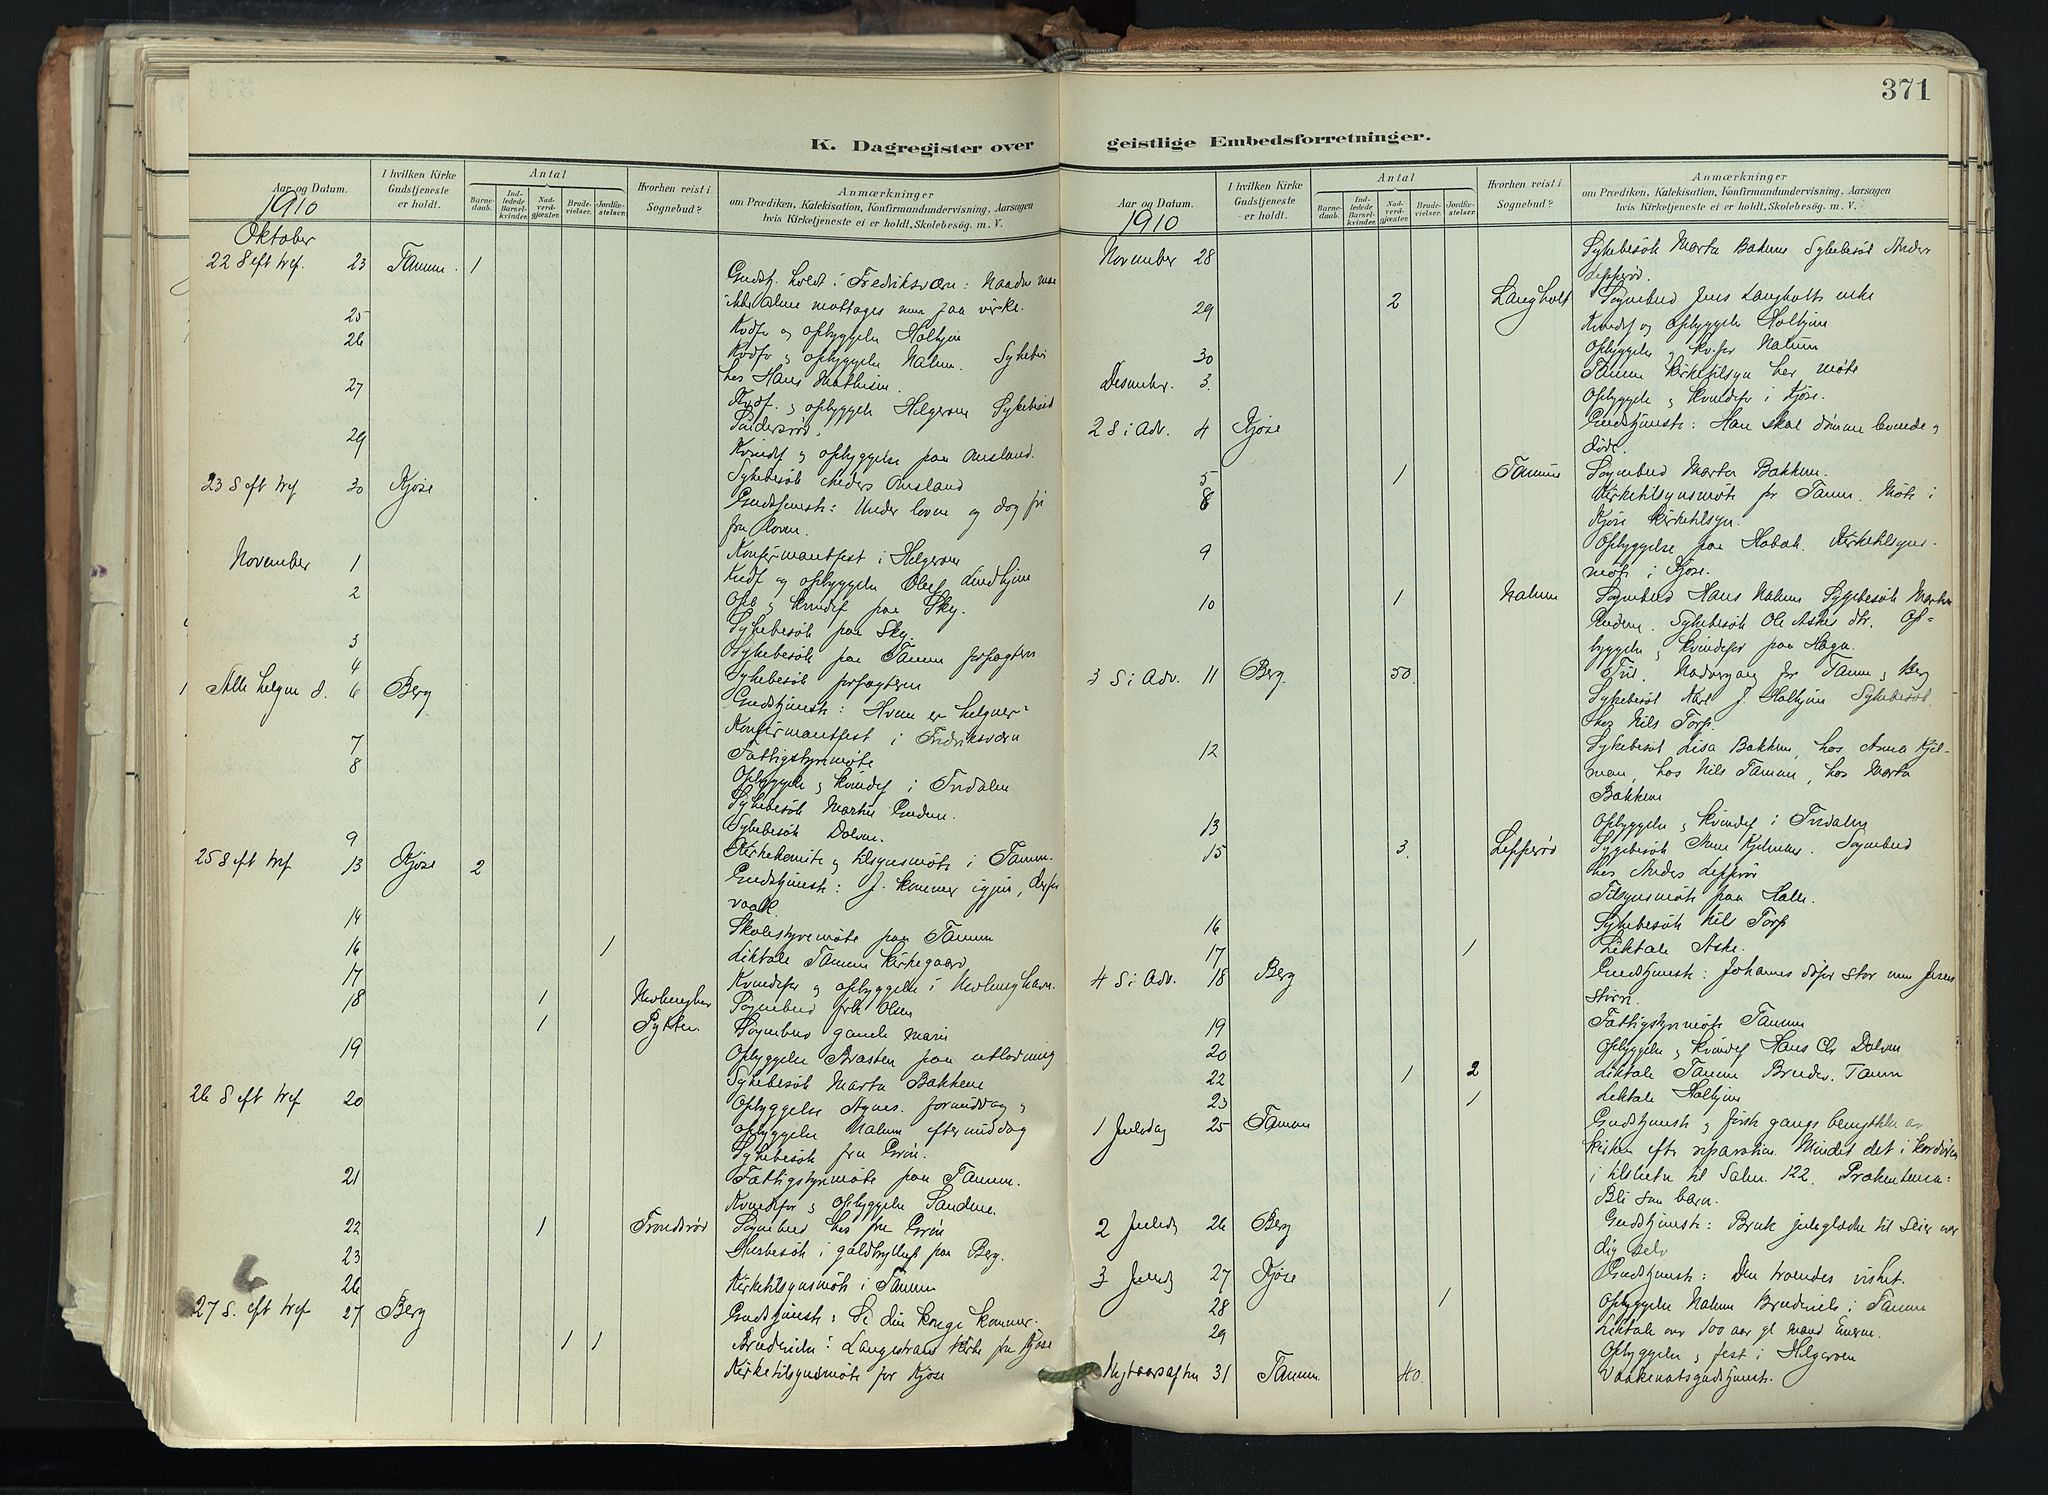 371
K. Dagregister over geistlige Embedsforretninger.
Aar og Datum.
I hvilken Kirke Gudstjeneste er holdt.
Antal
Barnedaab.
Indledede Barselkvinder.
Nadverdgjæster.
Brudevielser.
Jordfæstelser.
Hvorhen reist i Sognebud?
Anmærkninger
om Prædiken, Katekisation, Konfirmandundervisning, Aarsagen
hvis Kirketjeneste ei er holdt, Skolebesøg. m. V.
1910
Oktober
22 S eft tref. 23 Tanum. 1
Gudstj. holdt i Fredriksværn: Naaden maa
ikke alene mottages men paa virke.
25 Kvdf og opbyggelse Holhjem
26 Kvdfr og opbyggelse Nalum. Sykebes
hos Hans Mathisen.
27 Kvdf. og opbyggelse Helgeroen Sykebesök
29 Kvindef og opbyggelse paa Omsland.
Sykebesök Anders Omsland
23 S eft tref 30 Kjöse
Gudstjeneste: Under loven og dog fri
fra loven.
November 1 Konfirmantfest i Helgeroen
2 Kvdf og opbyggelse Oluf Lindhjem
Opb og kvindef paa Sky.
3 Sykebesök paa Sky.
4 Sykebesök paa Tanum forpagteren
Sykebesök forpagteren
Alle helgen d. 6 Berg
Gudstjeneste: Hvem er helgner?
Konfirmantfest i Fredriksværn
7 Fattigstyremöte
8 Opbyggelse og kvindef i Tvedalen
Sykebesök Martin Enden.
Sykebesök Dolven.
9 Kirkekomite og tilsynsmöte i Tanum.
25 S eft tref 13 Kjöse 2
Gudstjeneste: J. kommer igjen, derfor
vaak.
14 Skolestyremöte paa Tanum
16 1 Liktale Tanum kirkegaard
17 Kvindefor og opbyggelse i Nevlunghavn.
18 1 Nevlunghav Sognebud frk Olsen
1 Pytten Sognebud gamle Marie
19 Opbyggelse Braaten paa utlodning
Sykebesök Marta Bakkene
26 S eft tref 20 Opbyggelse Agnes. formiddag og
opbyggelse Nalum eftermiddag
Sykebesök fru Grön.
21 Fattigstyremöte paa Tanum.
Kvindefor og opbyggelse Sandene.
22 1 Trondsröd Sognebud hos fru Grön
23 Husbesök i guldbryllup paa Berg.
26 Kirketilsynsmöte i Tanum
27 S. eft tref 27 Berg
Gudstjeneste: Se din konge kommer.
1 1 Brudevielse i Langestrand kirke fra Kjöse
Kirketilsynsmöte for Kjöse
Aar og Datum.
I hvilken Kirke Gudstjeneste er holdt.
Antal
Barnedaab.
Indledede Barselkvinder.
Nadverdgjæster.
Brudevielser.
Jordfæstelser.
Hvorhen reist i Sognebud?
Anmærkninger
om Prædiken, Katekisation, Konfirmandundervisning, Aarsagen
hvis Kirketjeneste ei er holdt, Skolebesøg. m. V.
1910
November 28 Sykebesök Marta Bakkene Sykebesök Anders
Lepperöd.
29 2 Langholt Sognebud Jens Langholts enke
Kvindef og opbyggelse Holhjem
30 Opbyggelse og kv.for Nalum
Desember. 3. Tanum kirketilsyn her möte
Opbyggelse og kvindefor i Kjöse.
2 S i Adv. 4 Kjöse
Gudstjeneste: Han skal dömme levende og
döde.
5 1 Tanum Sognebud Marta Bakken.
8 Kirketilsynsmöte for Tanum. Möte i
Kjöse kirketilsyn.
9 Opbyggelse paa Hobæk. Kirketilsyns-
möte i Kjöse.
10 1 Nalum Sognebud Hans Nalum Sygebesök Martin
Enden. Sykebesök Ole Askes dtr. Op-
byggelse og kvindefor paa Hagn.
3 S i Adv. 11 Berg. 50.
Tvil. Nadvergang for Tanum og Berg
Sykebesök Karl J. Holhjem Sykebesök
hos Nils Torp.
12 Sykebesök Lisa Bakken, hos Anna Kjel-
man, hos Nils Tanum, hos Marta
Bakkene
13 Opbyggelse og kvindef i Tvedalen
15 3. Lepperöd Sygebesök Anne Kjelman. Sognebud
hos Anders Lepperöd
Tilsynsmöte paa Halle.
16 Sykebesök Nils Torp
17 1 Liktale Aske.
4 S i Adv. 18 Berg
Gudstjeneste: Johannes döper stor men Jesus
störst.
19 Fattigstyremöte Tanum
20 Opbyggelse og kvindef Hans Chr Dolven
22 1 2 Liktale Tanum Brudev. Tanum
23 1 Liktale Holhjem
1 Juledag 25 Tanum
Gudstjeneste og först gangs benyttelse av
kirken efter reparation. Mindet det i kordören
i tilslutn til Salm. 122. Præken tema:
Bli som barn.
2 Juledg 26 Berg
Gudstjeneste: Bruk juleglæde til seier over
dig selv
3 Juledg 27 Kjöse
Gudstjeneste: Den troendes vished.
28 1 Opbyggelse Nalum Brudeviels i Tanum
29 Liktale over 100 aar gl mand
Opbyggelse og fest i Helgeroen
Nytaarsaften 31 Tanum. 40. Vaakenatsgudstjeneste.